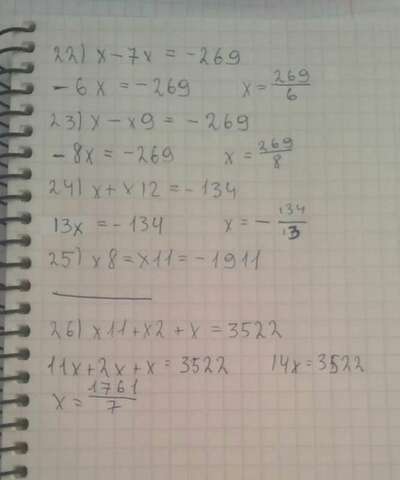 22) x - 7x = -269
- 6x = -269 x = 269/6
23) x - x9 = -269
- 8x = -269 x = 269/8
24) x + x12 = -134
13x = -134 x = - 134/13
25) x8 = x11 = -1911
26) x11 + x2 + x = 3522
11x + 2x + x = 3522 14x = 3522
x = 1761/7